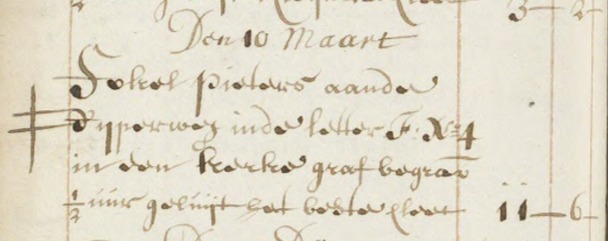 3 - 2 -
Den 10 Maart
Fokel pieters aande
dijperweg inde letter F. No 4
in een kerke graf begrav
1/2 uur geluijt het beste kleet 11 - 6 -